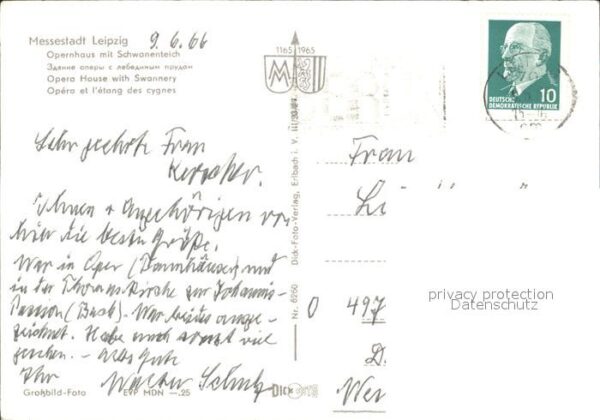 Messestadt Leipzig 9.6.66
Opernhaus mit Schwanenteich
Здание оперы с лебединым прудом
Opera House with Swannery
Opéra et l'étang des cygnes
1165 1965
M
DEUTSCHE
DEMOKRATISCHE REPUBLIK
10
Sehr geehrte Frau
Ihnen + Angehörigen von
hier die besten Grüße.
War in Oper (Tannhäuser) und
in der Thomaskirche zur Johannis-
Passion (Bach). War beides ausge-
zeichnet. Habe auch sonst viel
gesehen. – Alles Gute
Ihr Walter Schulz
Großbild-Foto EVP MDN —.25
Nr. 6260 Dick-Foto-Verlag, Erlbach i. V.
DICK
Frau
497
D.
Wer
privacy protection
Datenschutz